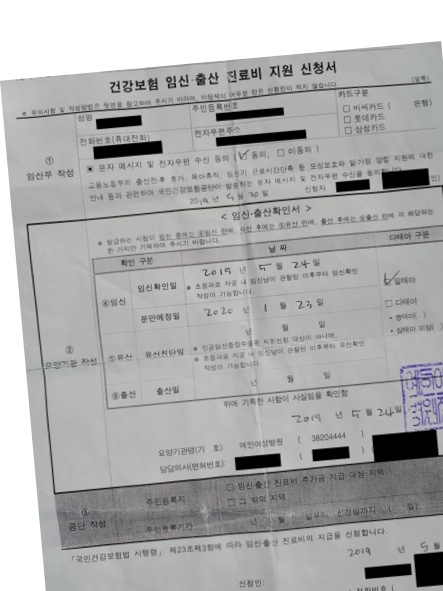 건강보험 임신·출산 진료비 지원 신청서
(앞쪽)
※ 유의사항 및 작성방법은 뒷면을 참고하여 주시기 바라며, 바탕색이 어두운 란은 신청인이 적지 않습니다.
성명
주민등록번호
카드구분
□ 비씨카드 ( 은행)
□ 롯데카드
□ 삼성카드
전화번호(휴대전화)
전자우편주소
①
임산부 작성
문자 메시지 및 전자우편 수신 동의 (☑ 동의, □ 미동의)
고용노동부의 출산전·후 휴가, 육아휴직, 임신기 근로시간단축 등 모성보호와 일가정 양립 지원에 대한
안내 등과 관련하여 국민건강보험공단이 발송하는 문자 메시지 및 전자우편 수신을 동의합니다.
2019 년 5 월 30 일 신청자
< 임신·출산확인서 >
확인 구분
날 짜
다태아 구분
④임신
임신확인일
2019 년 5 월 24 일
※ 초음파로 자궁 내 임신낭이 관찰된 이후부터 임신확인
작성이 가능합니다.
☑ 일태아
□ 다태아
분만예정일
2020 년 1 월 23 일
②
요양기관 작성
⑤유산
유산진단일
년 월 일
※ 초음파로 자궁 내 임신낭이 관찰된 이후부터 유산확인
작성이 가능합니다.
⑥출산
출산일
년 월 일
위에 기록한 사항이 사실임을 확인함
2019 년 5 월 24 일
요양기관명(기 호): 예인여성병원 ( 38204444 )
담당의사(면허번호): ( )
③
공단 작성
주민등록지
□ 임신·출산 진료비 추가금 지급 대상 지역
□ 그 밖의 지역
주민등록기간
년 월 일부터 신청일까지 ( 일)
「국민건강보험법 시행령」 제23조제3항에 따라 임신·출산 진료비의 지급을 신청합니다.
2019 년 5 월
신청인: